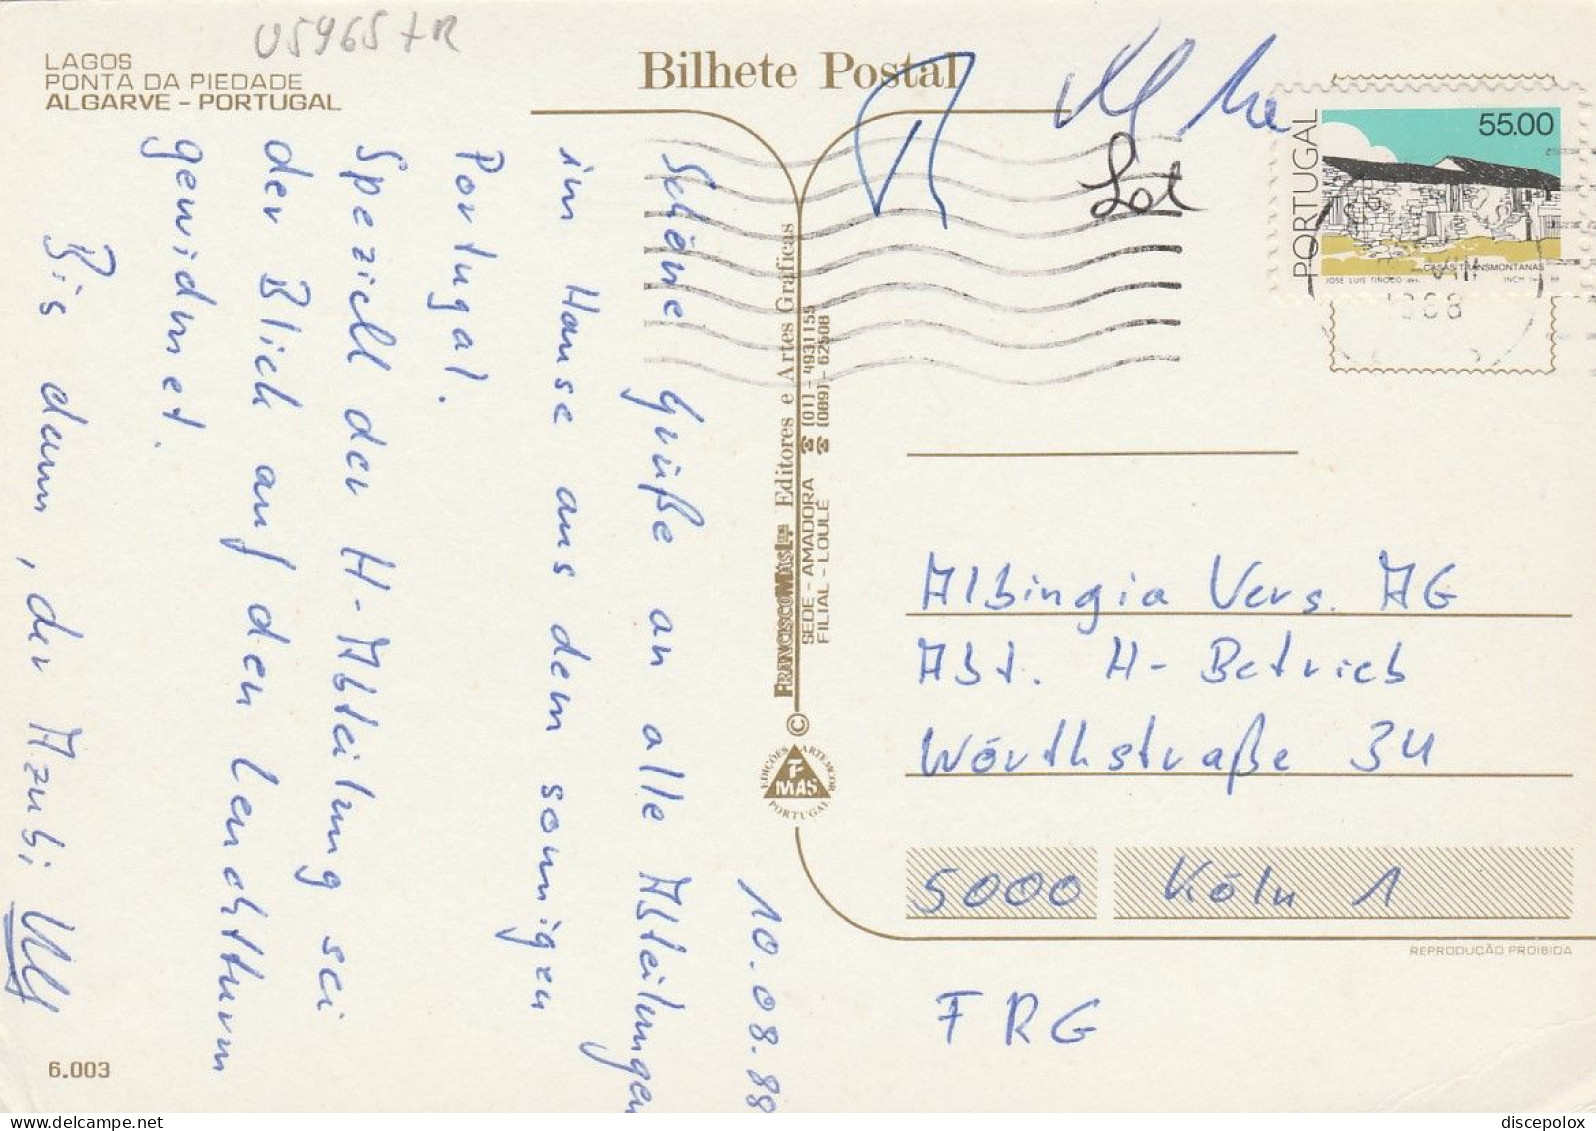 U5965 FR
LAGOS
PONTA DA PIEDADE
ALGARVE - PORTUGAL
Bilhete Postal
Lot
PORTUGAL
55.00
CASAS TRANSMONTANAS
JOSÉ LUIS TINOCO
INCM
VIII
1988
10.08.88
Schöne Grüße an alle Abteilungen
im Hause aus dem sonnigen
Portugal.
Speziell der H-Abteilung sei
der Blick auf den Leuchtturm
gewidmet.
Bis dann, der Azubi Ulf
FRANCISCO MAS Lda Editores e Artes Gráficas
SEDE - AMADORA ☎ (01) - 4931155
FILIAL - LOULÉ ☎ (089) - 62508
©
EDIÇÕES ARTEMCOR
F
MAS
PORTUGAL
Albingia Vers. AG
Abt. H-Betrieb
Wörthstraße 34
5000 Köln 1
REPRODUÇÃO PROIBIDA
FRG
6.003
discepolox